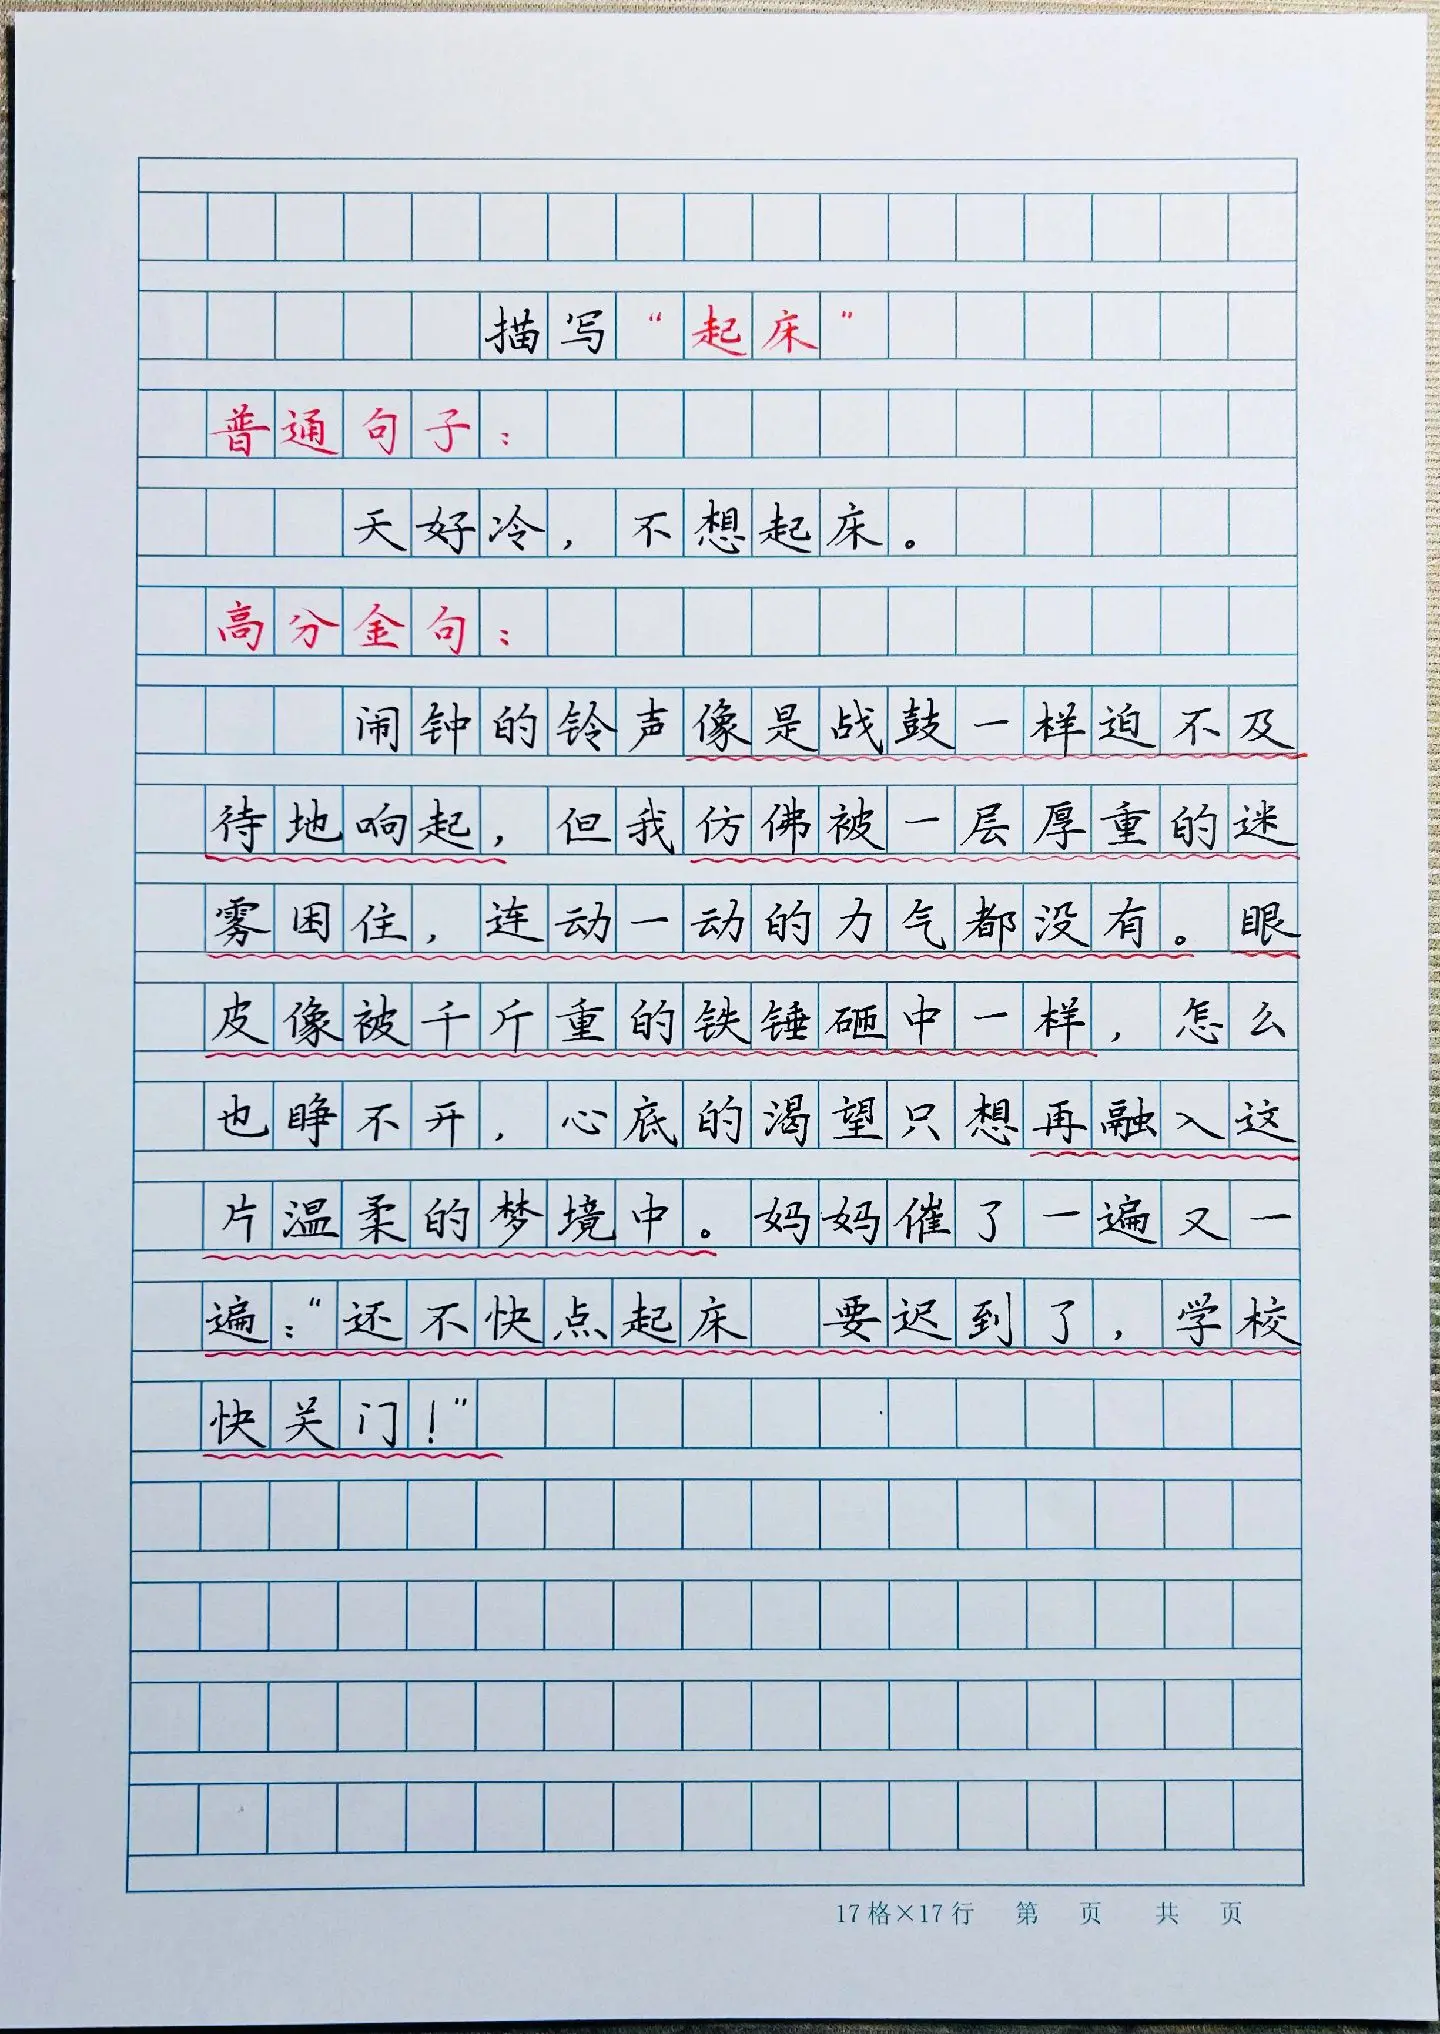 描写“起床”
普通句子：
天好冷，不想起床。
高分金句：
闹钟的铃声像是战鼓一样迫不及
待地响起，但我仿佛被一层厚重的迷
雾困住，连动一动的力气都没有。眼
皮像被千斤重的铁锤砸中一样，怎么
也睁不开，心底的渴望只想再融入这
片温柔的梦境中。妈妈催了一遍又一
遍：“还不快点起床 要迟到了，学校
快关门！”
17格×17行 第 页 共 页